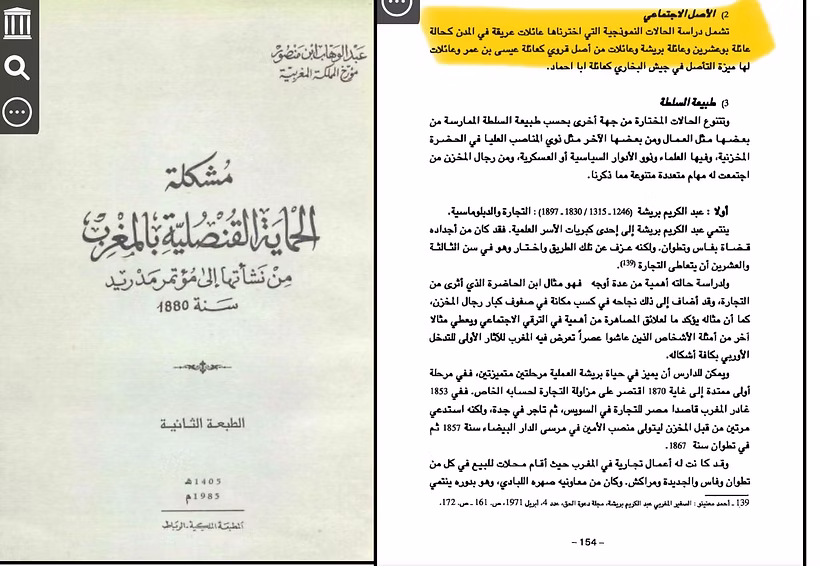 عبد الوهاب ابن منصور
مؤرخ المملكة المغربية
مشكلة
الحماية القنصلية بالمغرب
من نشأتها إلى مؤتمر مدريد
سنة 1880
الطبعة الثانية
1405 هـ
1985 م
المطبعة الملكية - الرباط
2) الأصل الاجتماعي
تشمل دراسة الحالات النموذجية التي اخترناها عائلات عريقة في المدن كحالة
عائلة بوعشرين وعائلة بريشة وعائلات من أصل قروي كعائلة عيسى بن عمر وعائلات
لها ميزة التأصل في جيش البخاري كعائلة ابا احماد.
3) طبيعة السلطة
وتتنوع الحالات المختارة من جهة أخرى بحسب طبيعة السلطة الممارسة من
بعضها مثل العمال ومن بعضها الآخر مثل ذوي المناصب العليا في الحضرة
المخزنية، وفيها العلماء وذوو الأدوار السياسية أو العسكرية، ومن رجال المخزن من
اجتمعت له مهام متعددة متنوعة مما ذكرنا.
أولا : عبد الكريم بريشة (1246 - 1315 / 1830 - 1897) : التجارة والدبلوماسية.
ينتمي عبد الكريم بريشة إلى إحدى كبريات الأسر العلمية. فقد كان من أجداده
قضاة بفاس وتطوان. ولكنه عزف عن تلك الطريق واختار وهو في سن الثالثة
والعشرين أن يتعاطى التجارة (139).
ولدراسة حالته أهمية من عدة أوجه فهو مثال ابن الحاضرة الذي أثرى من
التجارة، وقد أضاف إلى ذلك نجاحه في كسب مكانة في صفوف كبار رجال المخزن،
كما أن مثاله يؤكد ما لعلائق المصاهرة من أهمية في الترقي الاجتماعي ويعطي مثالا
آخر من أمثلة الأشخاص الذين عاشوا عصراً تعرض فيه المغرب للآثار الأولى للتدخل
الأوربي بكافة أشكاله.
ويمكن للدارس أن يميز في حياة بريشة العملية مرحلتين متميزتين، ففي مرحلة
أولى ممتدة إلى غاية 1870 اقتصر على مزاولة التجارة لحسابه الخاص. ففي 1853
غادر المغرب قاصدا مصر للتجارة في السويس، ثم تاجر في جدة، ولكنه استدعي
مرتين من قبل المخزن ليتولى منصب الأمين في مرسى الدار البيضاء سنة 1857 ثم
في تطوان سنة 1867.
وقد كا نت له أعمال تجارية في المغرب حيث أقام محلات للبيع في كل من
تطوان وفاس والجديدة ومراكش. وكان من معاونيه صهره اللبادي، وهو بدوره ينتمي
139 - أحمد معنينو : السفير المغربي عبد الكريم بريشة، مجلة دعوة الحق، عدد 4، أبريل 1971، ص. 161 - ص. 172.
- 154 -